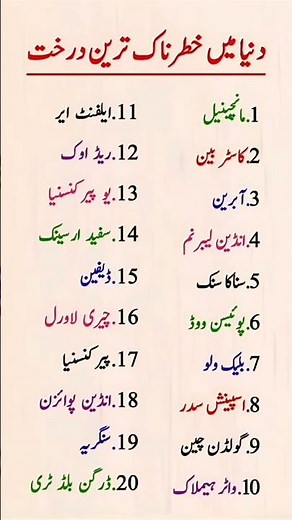 دنیا میں خطرناک ترین درخت
1.مانچینیل
2.کاسٹر بین
3.آبرین
4.انڈین لیبرنم
5.سناکا سنک
6.پوئیسن ووڈ
7.بلیک ولو
8.اسپینش سدر
9.گولڈن چین
10.واٹر ہیملاک
11.ایلفنٹ ایر
12.ریڈ اوک
13.یو پیر کنسنیا
14.سفید ارسینک
15.ڈیفین
16.چیری لاورل
17.پیر کنسنیا
18.انڈین پوائزن
19.سنگریہ
20.ڈرگن بلڈ ٹری